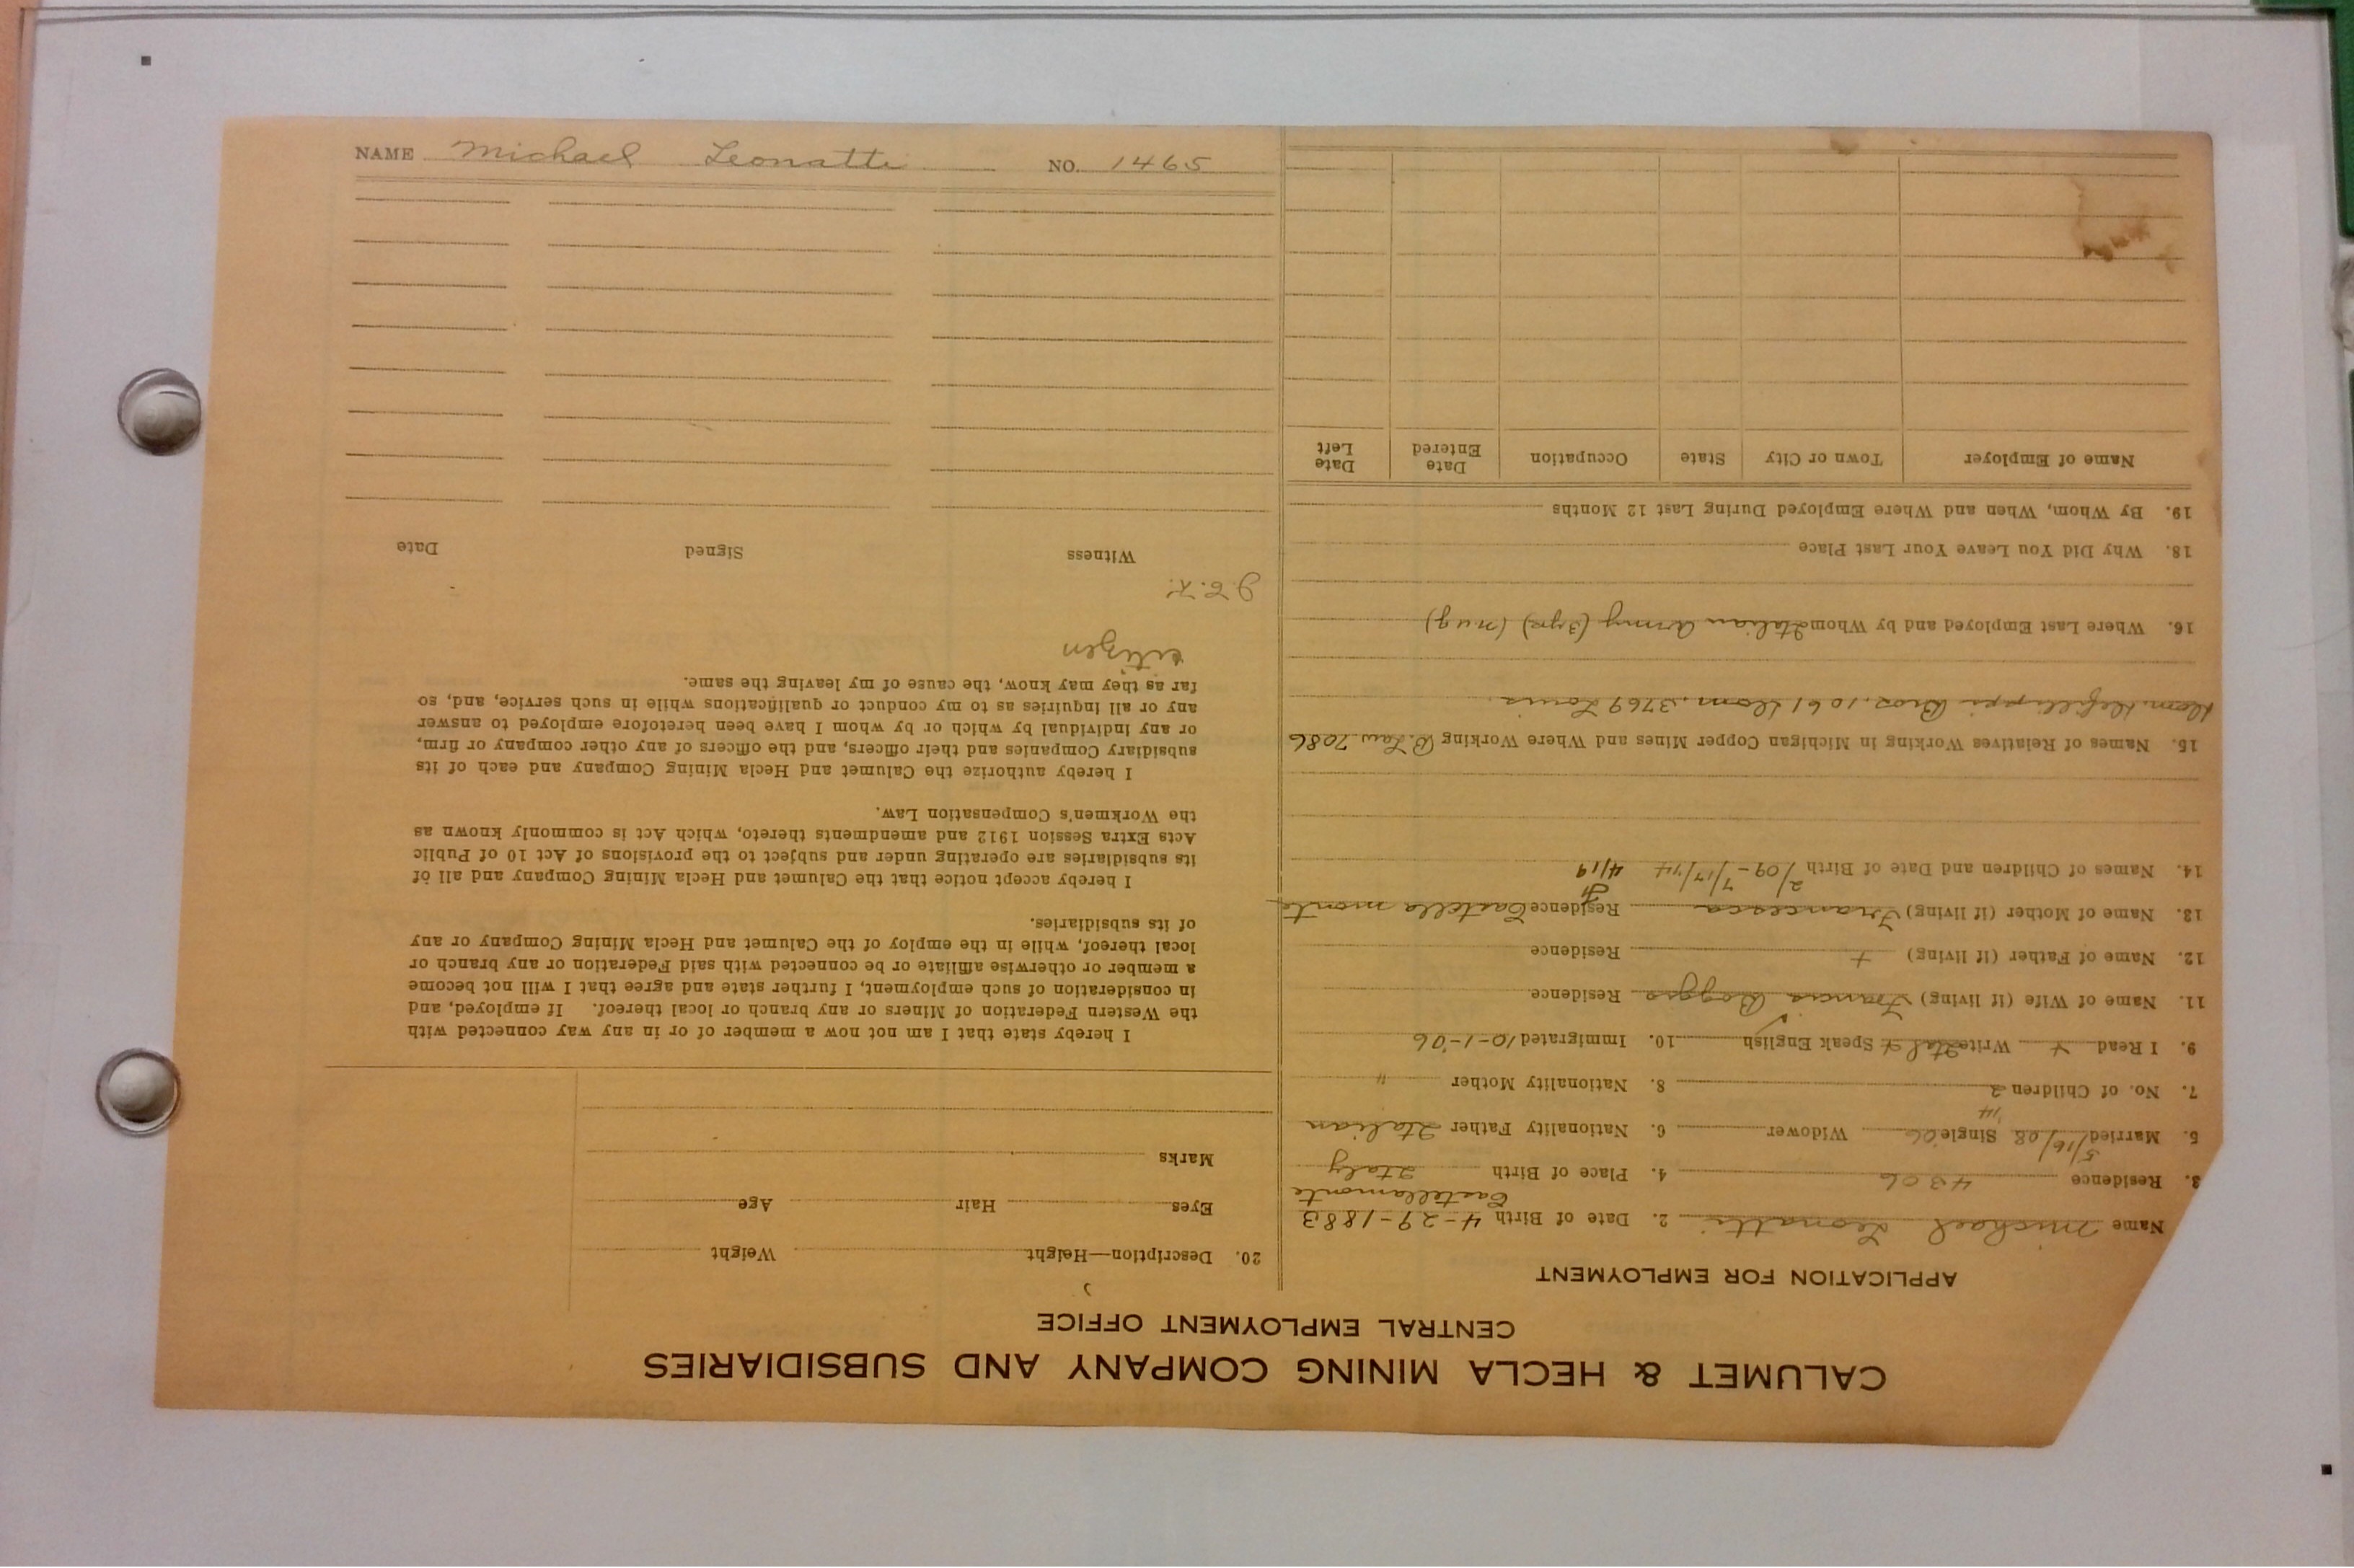 CALUMET & HECLA MINING COMPANY AND SUBSIDIARIES
CENTRAL EMPLOYMENT OFFICE
APPLICATION FOR EMPLOYMENT
Name Michael Leonatti 2. Date of Birth 4-29-1883
Castellamonte
3. Residence 4306 4. Place of Birth Italy
5. Married 5/16/08 Single Widower 6. Nationality Father Italian
7. No. of Children 2 8. Nationality Mother "
9. I Read + Write Ital + Speak English ✓ 10. Immigrated 10-1-'06
11. Name of Wife (if living) Francis Residence
12. Name of Father (if living) + Residence
13. Name of Mother (if living) Francesca Residence Castella monte
14. Names of Children and Date of Birth 2/09-7/17/14 4/19
15. Names of Relatives Working in Michigan Copper Mines and Where Working B. Law 7086
Bros. 1061 3769 Louis
16. Where Last Employed and by Whom Italian Army (3yrs)
18. Why Did You Leave Your Last Place
19. By Whom, When and Where Employed During Last 12 Months
Name of Employer Town or City State Occupation Date Entered Date Left
20. Description—Height Weight
Eyes Hair Age
Marks
I hereby state that I am not now a member of or in any way connected with
the Western Federation of Miners or any branch or local thereof. If employed, and
in consideration of such employment, I further state and agree that I will not become
a member or otherwise affiliate or be connected with said Federation or any branch or
local thereof, while in the employ of the Calumet and Hecla Mining Company or any
of its subsidiaries.
I hereby accept notice that the Calumet and Hecla Mining Company and all of
its subsidiaries are operating under and subject to the provisions of Act 10 of Public
Acts Extra Session 1912 and amendments thereto, which Act is commonly known as
the Workmen's Compensation Law.
I hereby authorize the Calumet and Hecla Mining Company and each of its
subsidiary Companies and their officers, and the officers of any other company or firm,
or any individual by which or by whom I have been heretofore employed to answer
any or all inquiries as to my conduct or qualifications while in such service, and, so
far as they may know, the cause of my leaving the same.
citizen
Witness Signed Date
NAME Michael Leonatti NO. 1465